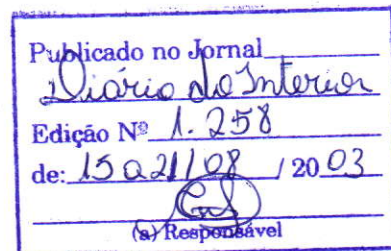 Publicado no Jornal
Diário do Interior
Edição Nº 1.258
de: 15 a 21/08 / 20 03
(a) Responsável